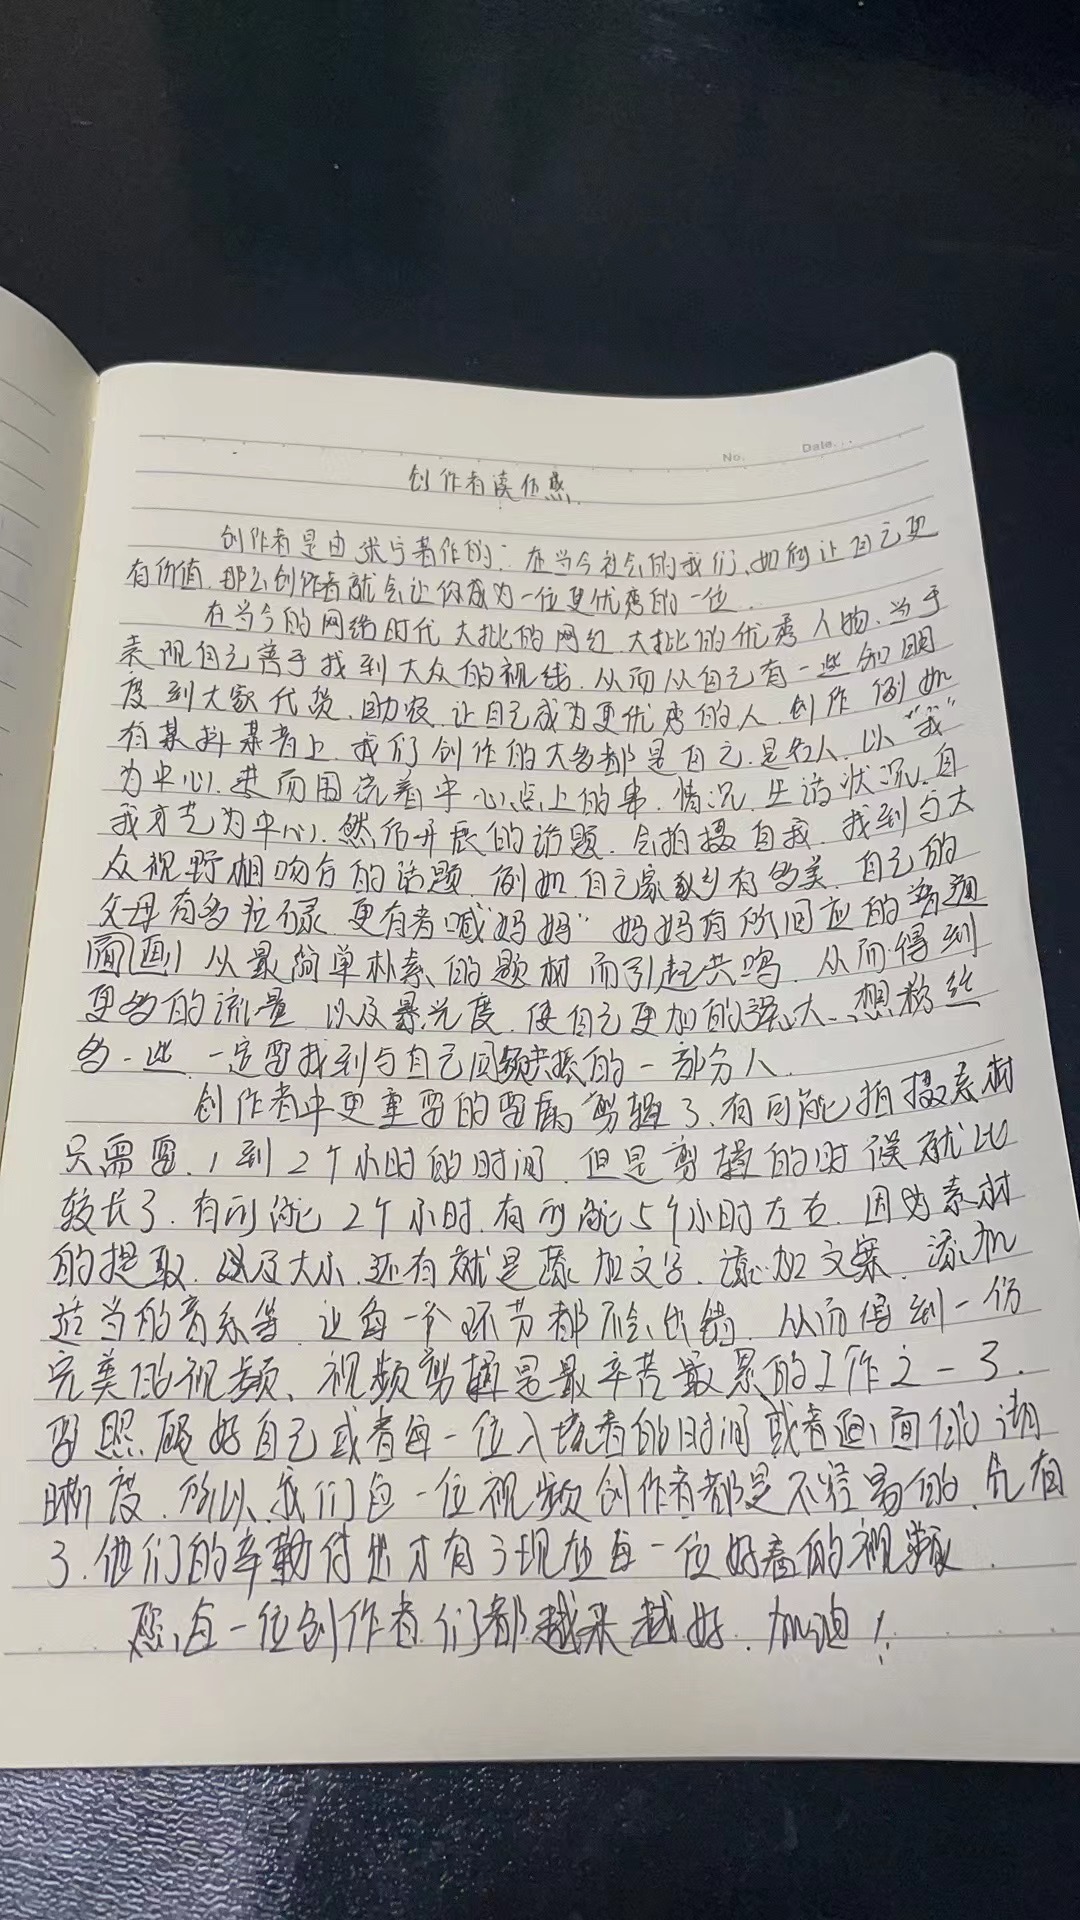 No.
Date...
创作者读后感.
创作者是由张宁著作的: 在当今社会的我们、如何让自己更
有价值. 那么创作者就会让你成为一位更优秀的一位.
在当今的网络时代 大批的网红 大批的优秀人物. 当于
表现自己善于找到大众的视线. 从而从自己有一些知明
度到大家代货、助农、让自己成为更优秀的人. 创作例如
有某抖某者上. 我们创作的大多都是自己. 是名人. 以"我"
为中心. 进而围绕着中心点上的事. 情况. 生活状况. 自
我才艺为中心. 然后开展的话题. 会拍摄自我. 找到与大
众视野相吻合的话题. 例如自己家乡有多美. 自己的
父母有多忙碌. 更有者喊"妈妈" 妈妈有所回应的普通
画面 从最简单朴素的题材而引起共鸣. 从而得到
更多的流量 以及暴光度. 使自己更加的强大. 想粉丝
多一些. 一定要找到与自己同频共振的一部分人.
创作者中更重要的要属剪辑了. 有可能拍摄素材
只需要. 1到2个小时的时间. 但是剪辑的时候就比
较长了. 有可能2个小时. 有可能5个小时左右. 因为素材
的提取. 以及大小. 还有就是添加文字. 添加文案. 添加
适当的音乐等. 让每一个环节都不会出错. 从而得到一份
完美的视频、视频剪辑是最辛苦最累的工作之一了.
要照顾好自己或者每一位入境者的时间或者画面的清
晰度. 所以我们每一位视频创作者都是不容易的. 只有
了. 他们的辛勤付出才有了现在每一位好看的视频.
愿每一位创作者们都越来越好. 加油!